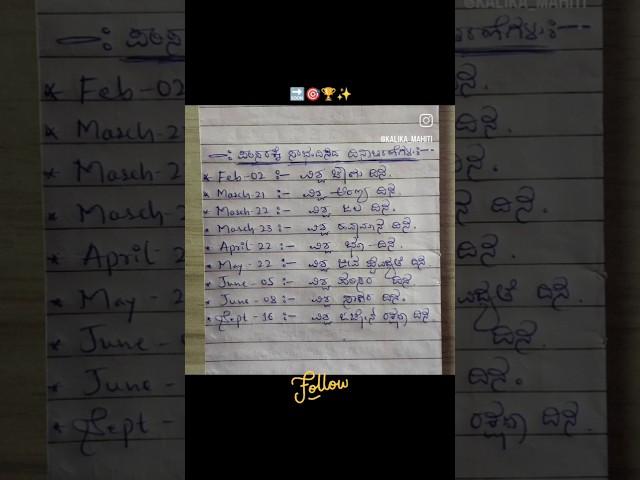 @KALIKA_MAHITI
-: ಪರಿಸರಕ್ಕೆ ಸಂಬಂಧಿಸಿದ ದಿನಾಚರಣೆಗಳು :-
* Feb-02 :- ವಿಶ್ವ ಜೌಗು ದಿನ.
* March-21 :- ವಿಶ್ವ ಅರಣ್ಯ ದಿನ.
* March-22 :- ವಿಶ್ವ ಜಲ ದಿನ.
* March-23 :- ವಿಶ್ವ ಹವಾಮಾನ ದಿನ.
* April-22 :- ವಿಶ್ವ ಭೂ-ದಿನ.
* May-22 :- ವಿಶ್ವ ಜೀವ ವೈವಿಧ್ಯತೆ ದಿನ
* June-05 :- ವಿಶ್ವ ಪರಿಸರ ದಿನ
* June-08 :- ವಿಶ್ವ ಸಾಗರ ದಿನ.
* Sept-16 :- ವಿಶ್ವ ಓಝೋನ್ ರಕ್ಷಣಾ ದಿನ
Follow